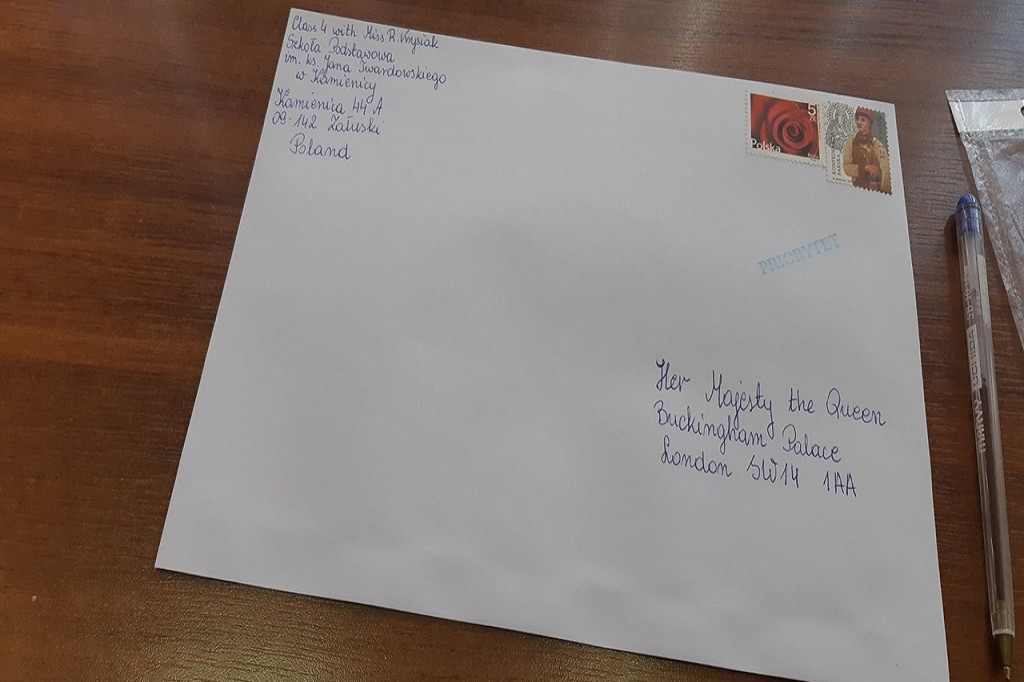 Class 4 with Miss R. Wysiak
Szkoła Podstawowa
im. ks. Jana Twardowskiego
w Kamienicy
Kamienica 44 A
09-142 Załuski
Poland
5
ZŁ
Polska
PRIORYTUT
Her Majesty the Queen
Buckingham Palace
London SW14 1AA